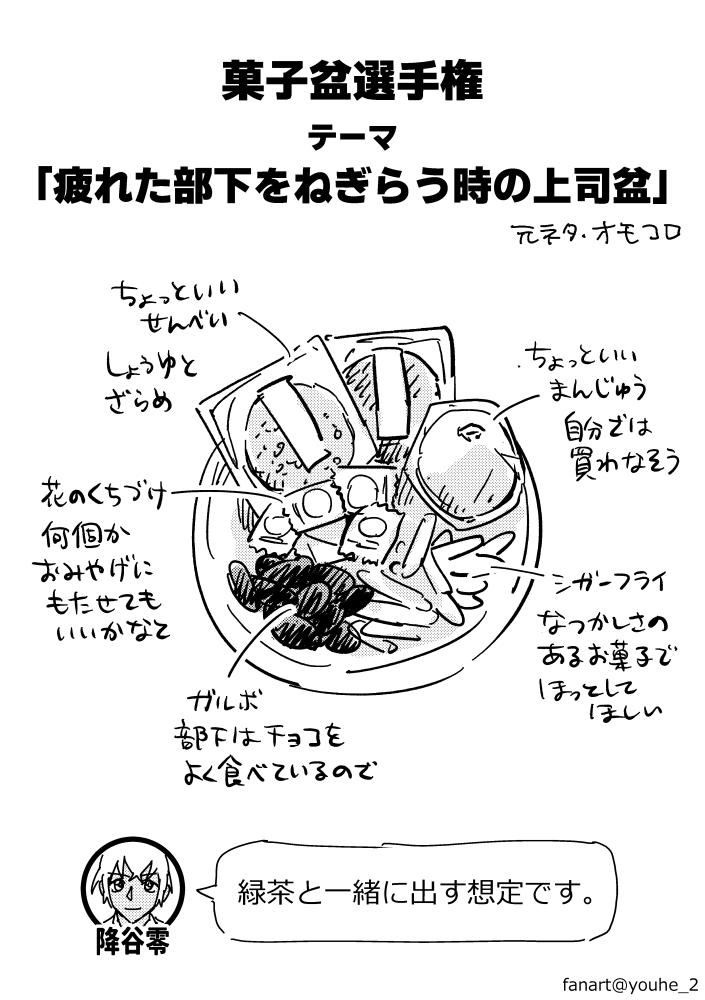 菓子盆選手権
テーマ
「疲れた部下をねぎらう時の上司盆」
元ネタ・オモコロ
ちょっといい
せんべい
しょうゆと
ざらめ
ちょっといい
まんじゅう
自分では
買わなそう
花のくちづけ
何個か
おみやげに
もたせても
いいかなと
シガーフライ
なつかしさの
あるお菓子で
ほっとして
ほしい
ガルボ
部下はチョコを
よく食べているので
緑茶と一緒に出す想定です。
降谷零
fanart@youhe_2